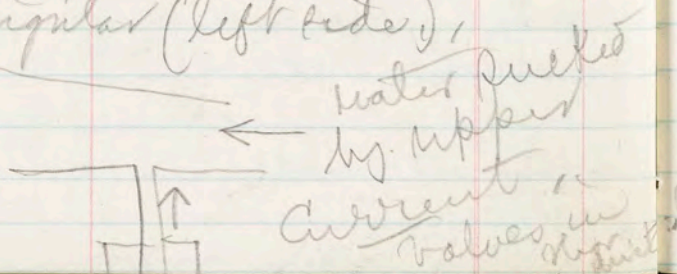 (left side),
water sucked
by upper
current,
valves in